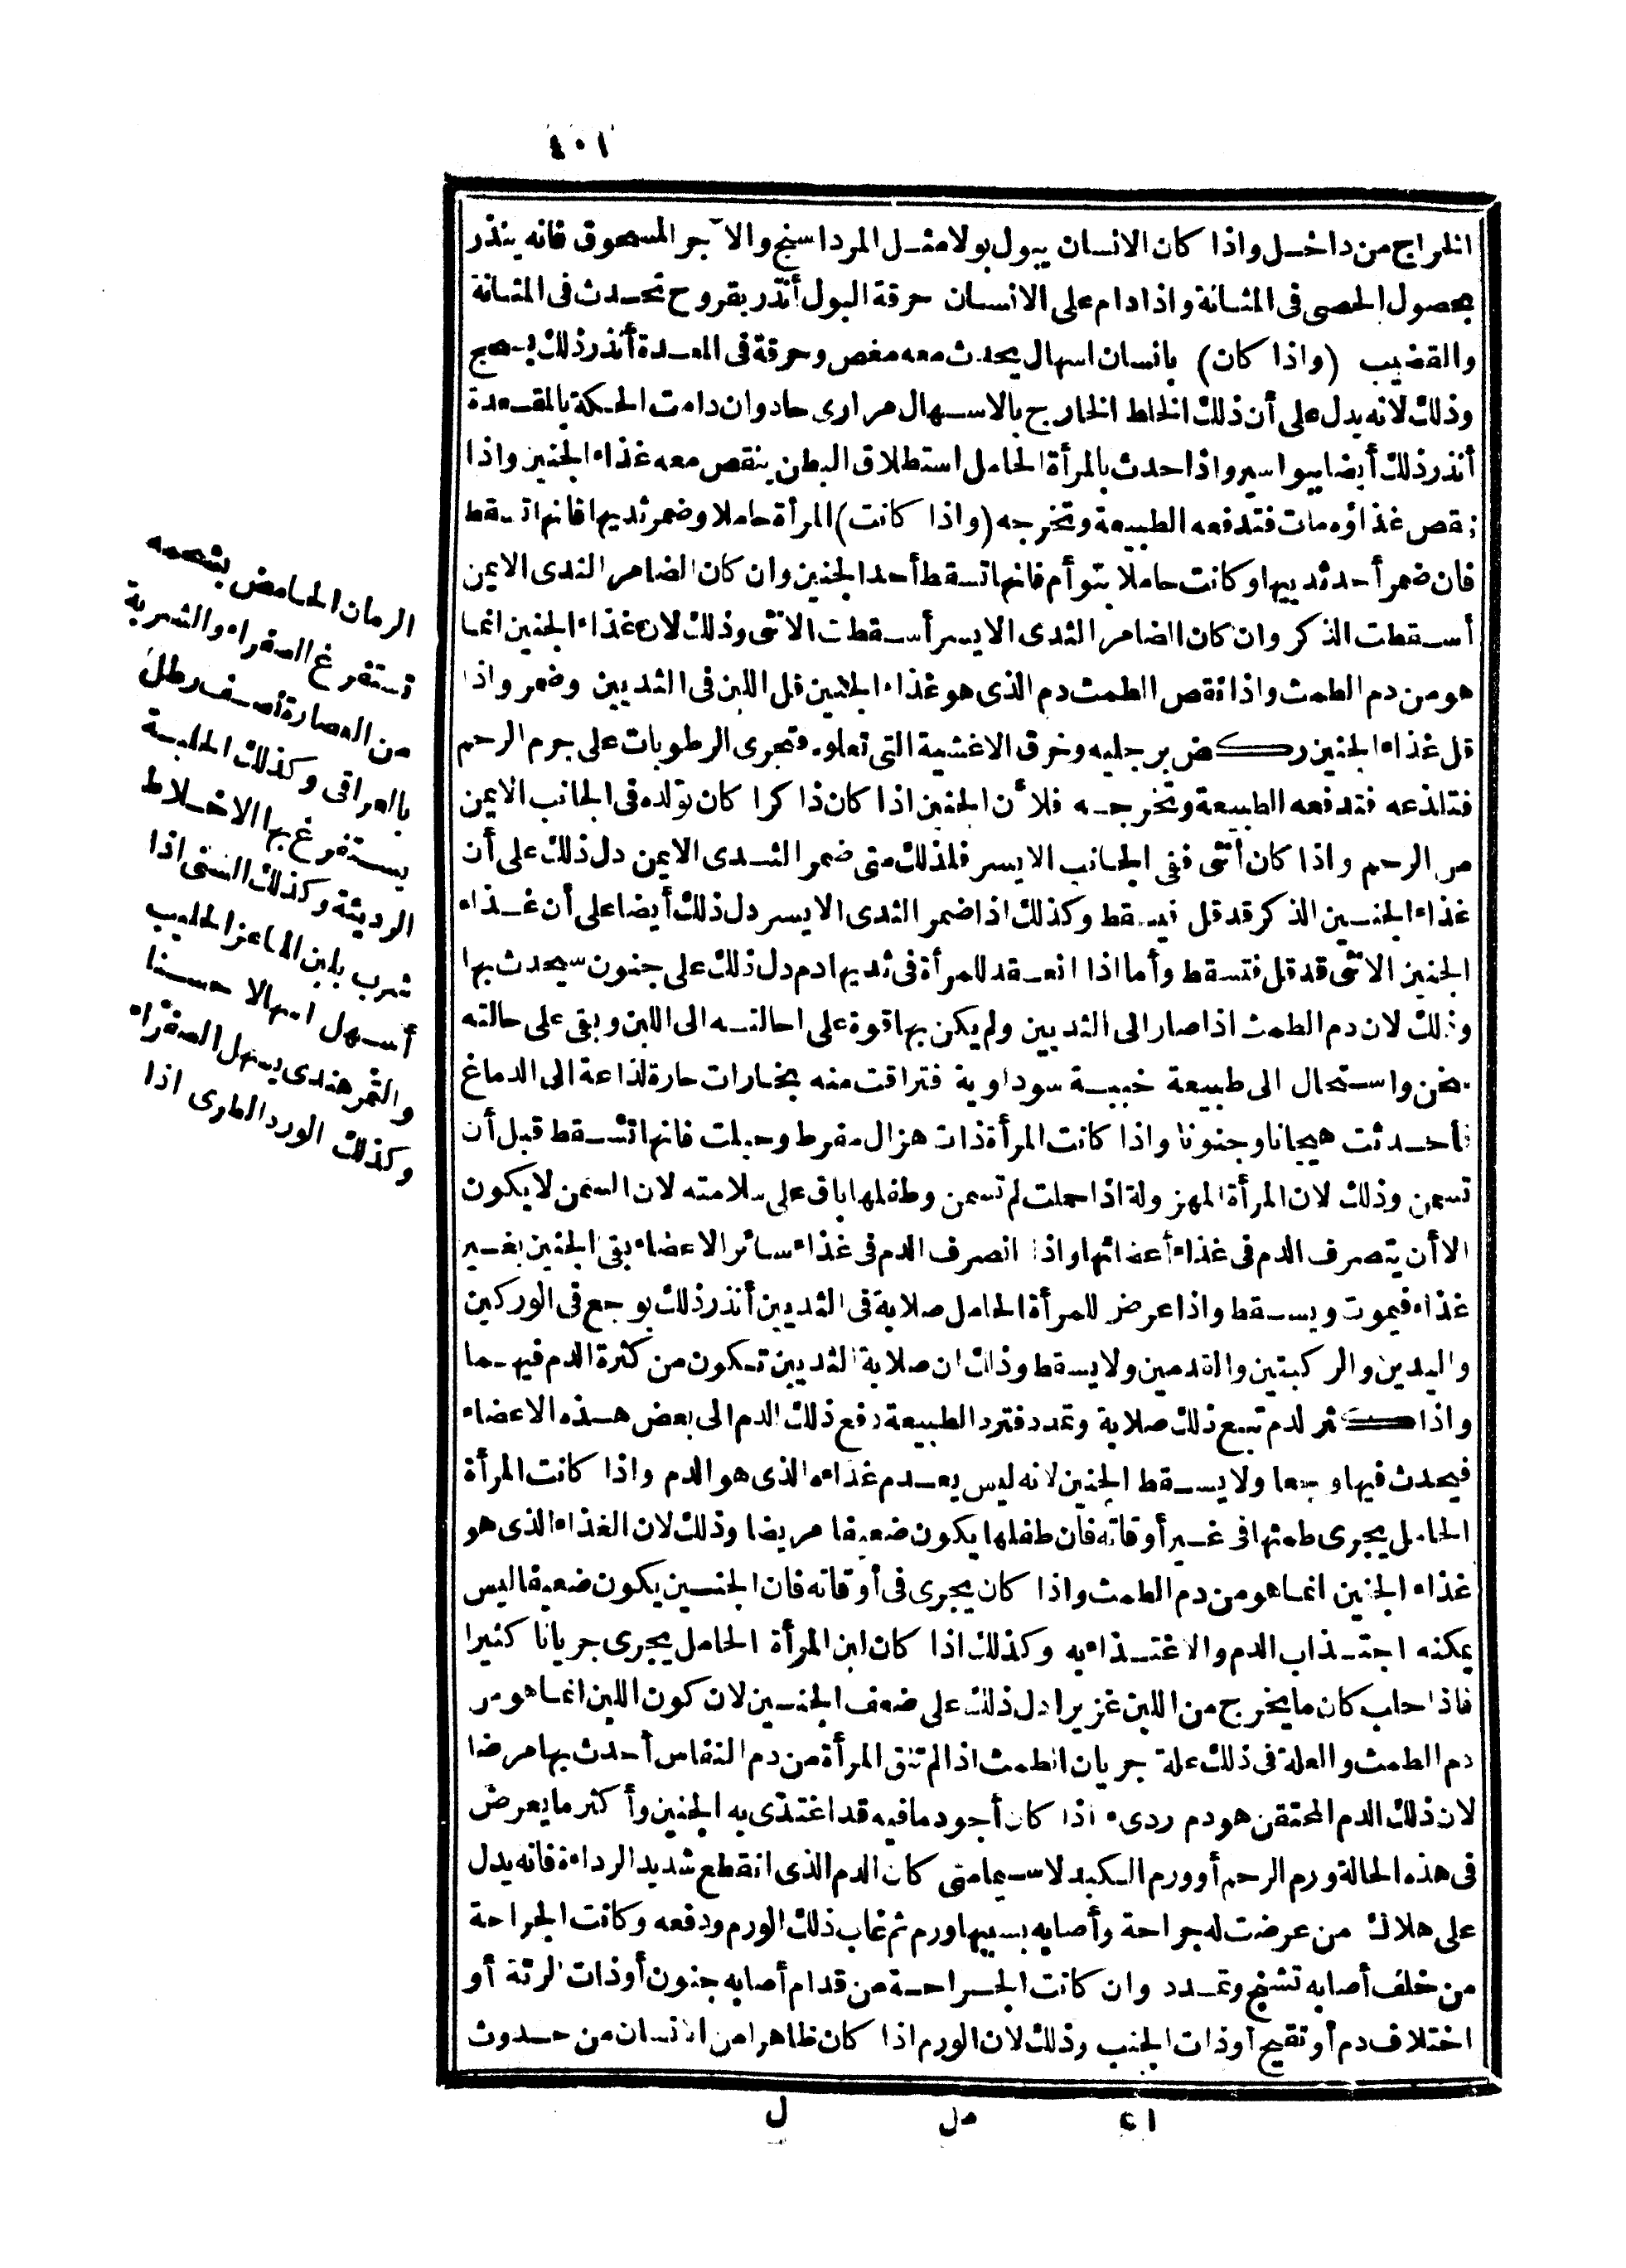 ٤٠١
الخراج من داخل واذا كان الانسان يبول بولا مثل المرداسنج والآجر المسحوق فانه ينذر
بحصول الحصى فى المثانة واذا دام على الانسان حرقة البول أنذر بقروح تحدث فى المثانة
والقضيب (واذا كان) بانسان اسهال يحدث معه مغص وحرقة فى المعدة أنذر ذلك بسحج
وذلك لانه يدل على أن ذلك الخلط الخارج بالاسهال مرارى حاد وان دامت الحكة بالمقعدة
أنذر ذلك أيضا ببواسير واذا حدث بالمرأة الحامل استطلاق البطن ينقص معه غذاء الجنين واذا
نقص غذاؤه مات فتدفعه الطبيعة وتخرجه (واذا كانت) المرأة حاملا وضمر ثدييها فانها تسقط
فان ضمر أحد ثدييها وكانت حاملا بتوأم فانها تسقط أحد الجنين وان كان الضامر الثدى الايمن
أسقطت الذكر وان كان الضامر الثدى الايسر أسقطت الانثى وذلك لان غذاء الجنين انما
هو من دم الطمث واذا نقص الطمث دم الذى هو غذاء الجنين قل اللبن فى الثديين وضمر واذا
قل غذاء الجنين ركض برجليه وخرق الاغشية التى تعلوه فتجرى الرطوبات على جرم الرحم
فتلذعه فتدفعه الطبيعة وتخرجه فلأن الجنين اذا كان ذاكرا كان تولده فى الجانب الايمن
من الرحم واذا كان أنثى ففى الجانب الايسر فلذلك متى ضمر الثدى الايمن دل ذلك على أن
غذاء الجنين الذكر قد قل فيسقط وكذلك اذا ضمر الثدى الايسر دل ذلك أيضا على أن غذاء
الجنين الانثى قد قل فتسقط وأما اذا انعقد للمرأة فى ثديها دم دل ذلك على جنون سيحدث بها
وذلك لان دم الطمث اذا صار الى الثديين ولم يكن بها قوة على احالته الى اللبن وبقى على حالته
سخن واستحال الى طبيعة خبيثة سوداوية فتراقت منه بخارات حارة لذاعة الى الدماغ
فأحدثت هيجانا وجنونا واذا كانت المرأة ذات هزال مفرط وحبلت فانها تسقط قبل أن
تسمن وذلك لان المرأة المهزولة اذا حملت لم تسمن وطفلها باق على سلامته لان السمن لا يكون
الا أن يتصرف الدم فى غذاء أعضائها واذا انصرف الدم فى غذاء سائر الاعضاء بقى الجنين بغير
غذاء فيموت ويسقط واذا عرض للمرأة الحامل صلابة فى الثديين أنذر ذلك بوجع فى الوركين
واليدين والركبتين والقدمين ولا يسقط وذلك ان صلابة الثديين تكون من كثرة الدم فيهما
واذا كثر لدم تبع ذلك صلابة وتمدد فترد الطبيعة دفع ذلك الدم الى بعض هذه الاعضاء
فيحدث فيها وجعا ولا يسقط الجنين لانه ليس يعدم غذاءه الذى هو الدم واذا كانت المرأة
الحامل يجرى طمثها فى غير أوقاته فان طفلها يكون ضعيفا مريضا وذلك لان الغذاء الذى هو
غذاء الجنين انما هو من دم الطمث واذا كان يجرى فى أوقاته فان الجنين يكون ضعيفا ليس
يمكنه اجتذاب الدم والاغتذاء به وكذلك اذا كان ابن المرأة الحامل يجرى جريانا كثيرا
فاذا حلب كان ما يخرج من اللبن غزيرا دل ذلك على ضعف الجنين لان كون اللبن انما هو من
دم الطمث والعلة فى ذلك علة جريان الطمث اذا لم تنق المرأة من دم النفاس أحدث بها مرضا
لان ذلك الدم المحتقن هو دم ردىء اذا كان أجود ما فيه قد اغتذى به الجنين وأكثر ما يعرض
فى هذه الحالة ورم الرحم أو ورم الكبد لا سيما متى كان الدم الذى انقطع شديد الرداءة فانه يدل
على هلاك من عرضت له جراحة وأصابه بسببها ورم ثم غاب ذلك الورم ودفعه وكانت الجراحة
من خلف أصابه تشنج وتمدد وان كانت الجراحة من قدام أصابه جنون أو ذات الرئة أو
اختلاف دم أو تقيح أو ذات الجنب وذلك لان الورم اذا كان ظاهرا من الانسان من حدوث
الرمان الحامض بشحمه
تستفرغ الصفراء والشربة
من العصارة نصف رطل
بالعراقى وكذلك الحلبة
يستفرغ بها الاخلاط
الرديئة وكذلك السنى اذا
شرب بلبن الماعز الحليب
أسهل اسهالا حسنا
والتمر هندى يسهل الصفراء
وكذلك الورد الطرى اذا
٥١ مل ل